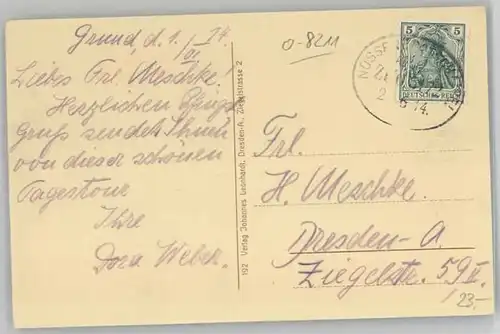 Grund, d. 1./VI. 14.
Liebes Frl. Meschke!
Herzlichen Pfingst
Gruß sendet Ihnen
von dieser schönen
Tagestour
Ihre
Dora Weber.
192 Verlag Johannes Leonhardt, Dresden-A., Ziegelstrasse 2
0-8211
NOSSE
ZU
2 6 14.
5 5
DEUTSCHES REICH
Frl.
H. Meschke.
Dresden-A
Ziegelstr. 59 II.
23.-